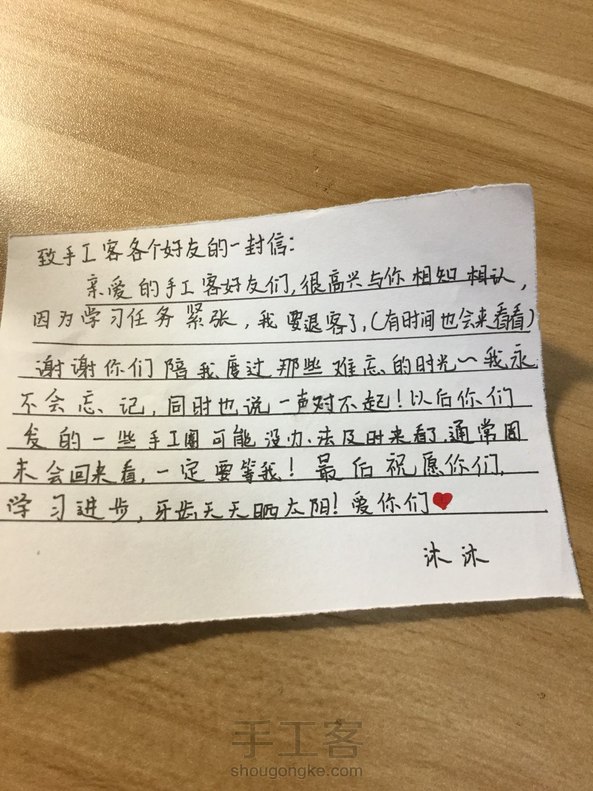 致手工客各个好友的一封信:
亲爱的手工客好友们,很高兴与你相知相认,
因为学习任务紧张,我要退客了,(有时间也会来看看)
谢谢你们陪我度过那些难忘的时光~我永
不会忘记,同时也说一声对不起!以后你们
发的一些手工圈可能没办法及时来看了,通常周
末会回来看,一定要等我!最后祝愿你们,
学习进步,牙齿天天晒太阳!爱你们❤
沐沐
手工客
shougongke.com